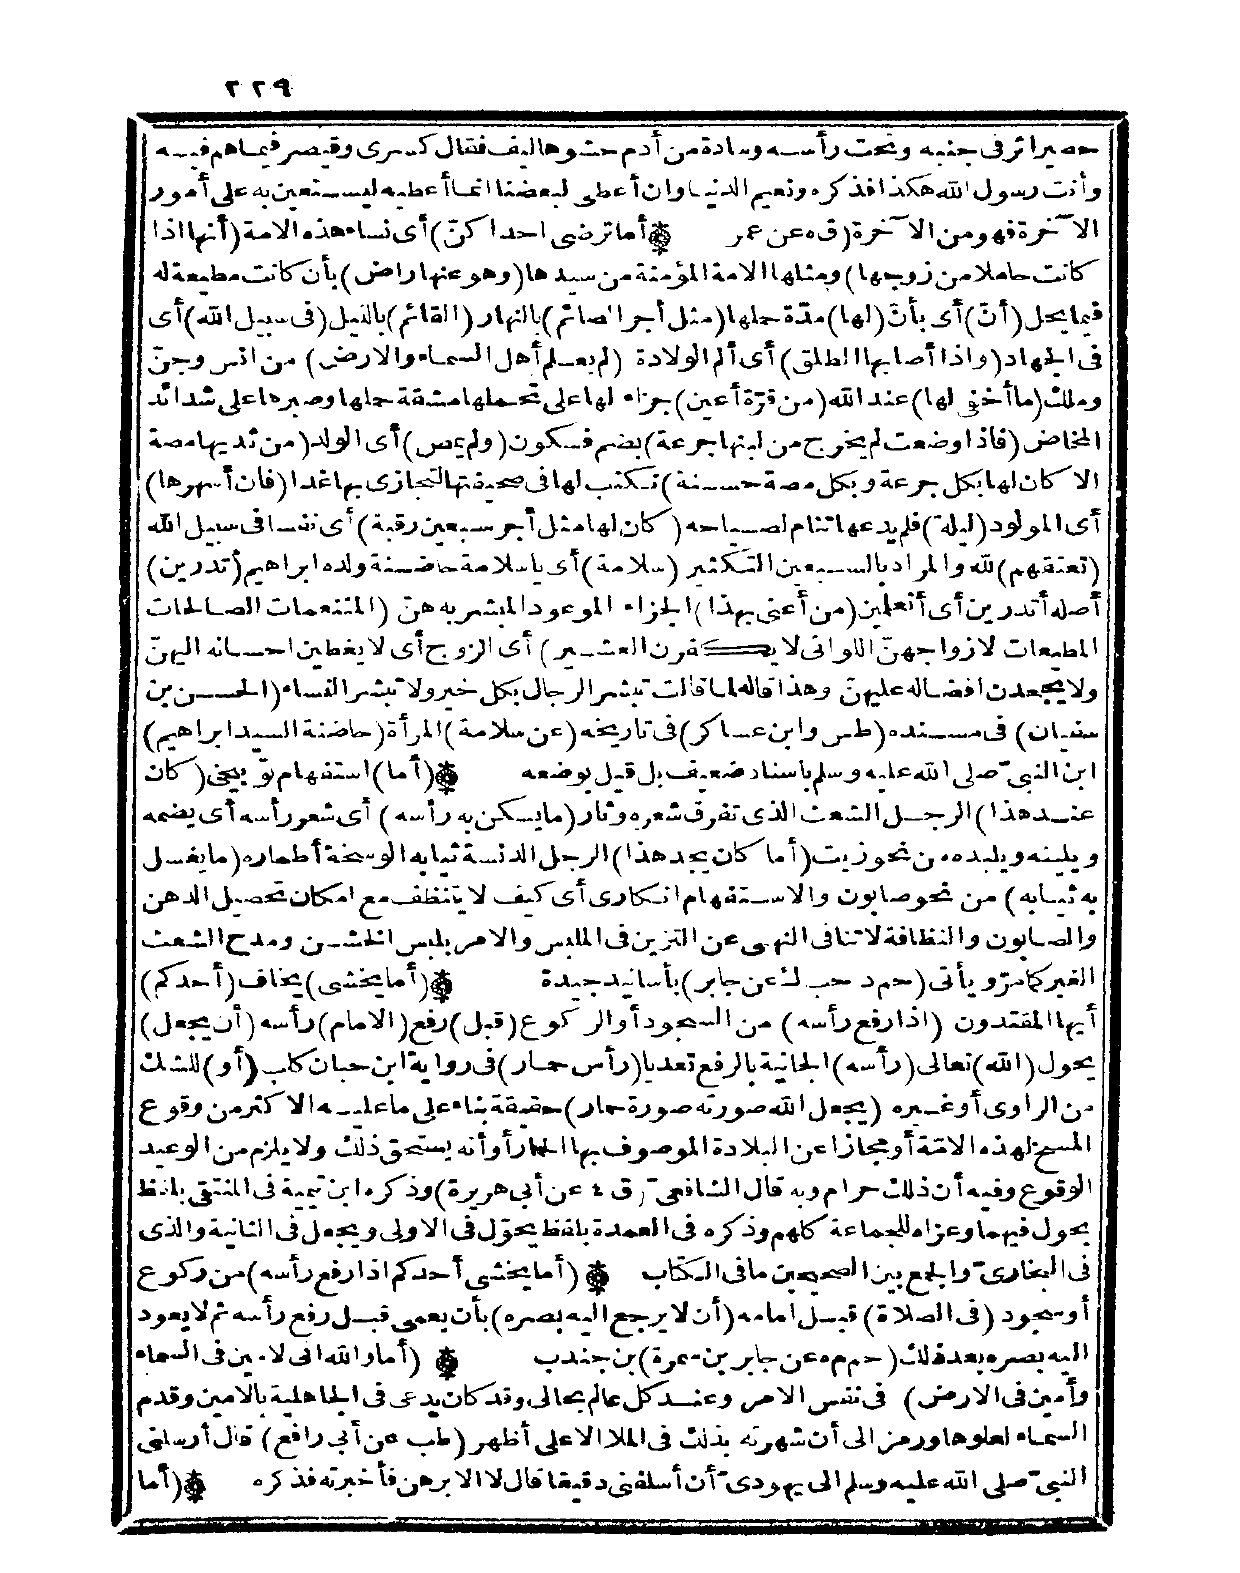 ٢٢٩
حصير أثر فى جنبه وتحت رأسه وسادة من أدم حشوها ليف فقال كسرى وقيصر فيما هم فيه
وأنت رسول الله هكذا فذكره ونعيم الدنيا وان أعطى لبعضنا انما أعطيه ليستعين به على أمور
الآخرة فهو من الآخرة (ق ه عن عمر ۞ أما ترضى احدا كنّ) أى نساء هذه الامة (أنها اذا
كانت حاملا من زوجها) ومثلها الامة المؤمنة من سيدها (وهو عنها راض) بأن كانت مطيعة له
فيما يحل (أنّ) أى بأنّ (لها) مدّة حملها (مثل أجر الصائم) بالنهار (القائم) بالليل (فى سبيل الله) أى
فى الجهاد (واذا أصابها الطلق) أى ألم الولادة (لم يعلم أهل السماء والارض) من انس وجنّ
وملك (ما أخفى لها) عند الله (من قرّة أعين) جزاء لها على تحملها مشقة حملها وصبرها على شدائد
المخاض (فاذا وضعت لم يخرج من لبنها جرعة) بضم فسكون (ولم يمص) أى الولد (من ثديها مصة
الا كان لها بكل جرعة وبكل مصة حسنة) تكتب لها فى صحيفتها لتجازى بها غدا (فان أسهرها)
أى المولود (ليلة) فلم يدعها تنام لصياحه (كان لها مثل أجر سبعين رقبة) أى نفسا فى سبيل الله
(تعتقهم) لله والمراد بالسبعين التكثير (سلامة) أى يا سلامة حاضنة ولده ابراهيم (تدرين)
أصله أتدرين أى أتعلمين (من أعنى بهذا) الجزاء الموعود المبشر به هنّ (المتنعمات الصالحات
المطيعات لازواجهنّ اللواتى لا يكفرن العشير) أى الزوج أى لا يغطين احسانه اليهنّ
ولا يجحدن افضاله عليهنّ وهذا قاله لما قالت تبشر الرجال بكل خير ولا تبشر النساء (الحسن بن
سفيان) فى مسنده (طس وابن عساكر) فى تاريخه (عن سلامة) المرأة (حاضنة السيد ابراهيم)
ابن النبىّ صلى الله عليه وسلم باسناد ضعيف بل قيل بوضعه ۞ (أما) استفهام توبيخى (كان
عند هذا) الرجل الشعث الذى تفرق شعره وثار (ما يسكن به رأسه) أى شعر رأسه أى يضمه
ويلينه ويلبده من نحو زيت (أما كان يجد هذا) الرجل الدنسة ثيابه الوسخة أطماره (ما يغسل
به ثيابه) من نحو صابون والاستفهام انكارى أى كيف لا يتنظف مع امكان تحصيل الدهن
والصابون والنظافة لا تنافى النهى عن التزين فى الملبس والامر بلبس الخشن ومدح الشعث
الغبر كما مرّ ويأتى (حم د حب ك عن جابر) بأسانيد جيدة ۞ (أما يخشى) يخاف (أحدكم)
أيها المقتدون (اذا رفع رأسه) من السجود أو الركوع (قبل) رفع (الامام) رأسه (أن يجعل)
يحول (الله) تعالى (رأسه) الجانية بالرفع تعديا (رأس حمار) فى رواية ابن حبان كلب (أو) للشك
من الراوى أو غيره (يجعل الله صورته صورة حمار) حقيقة بناء على ما عليه الاكثر من وقوع
المسخ لهذه الامّة أو مجازا عن البلادة الموصوف بها الحمار أو أنه يستحق ذلك ولا يلزم من الوعيد
الوقوع وفيه أن ذلك حرام وبه قال الشافعى (ق ٤ عن أبى هريرة) وذكره ابن تيمية فى المنتقى بلفظ
يحول فيهما وعزاه للجماعة كلهم وذكره فى العمدة بلفظ يحوّل فى الاولى ويجعل فى الثانية والذى
فى البخارىّ والجمع بين الصحيحين ما فى الكتاب ۞ (أما يخشى أحدكم اذا رفع رأسه) من ركوع
أو سجود (فى الصلاة) قبل امامه (أن لا يرجع اليه بصره) بأن يعمى قبل رفع رأسه ثم لا يعود
اليه بصره بعد ذلك (حم م ه عن جابر بن سمرة) بن جندب ۞ (أما والله انى لامين فى السماء
وأمين فى الارض) فى نفس الامر وعند كل عالم بحالى وقد كان يدعى فى الجاهلية بالامين وقدم
السماء لعلوها ورمز الى أن شهرته بذلك فى الملا الاعلى أظهر (طب عن أبى رافع) قال أرسلنى
النبىّ صلى الله عليه وسلم الى يهودىّ أن أسلفنى دقيقا قال لا الا برهن فأخبرته فذكره ۞ (أما